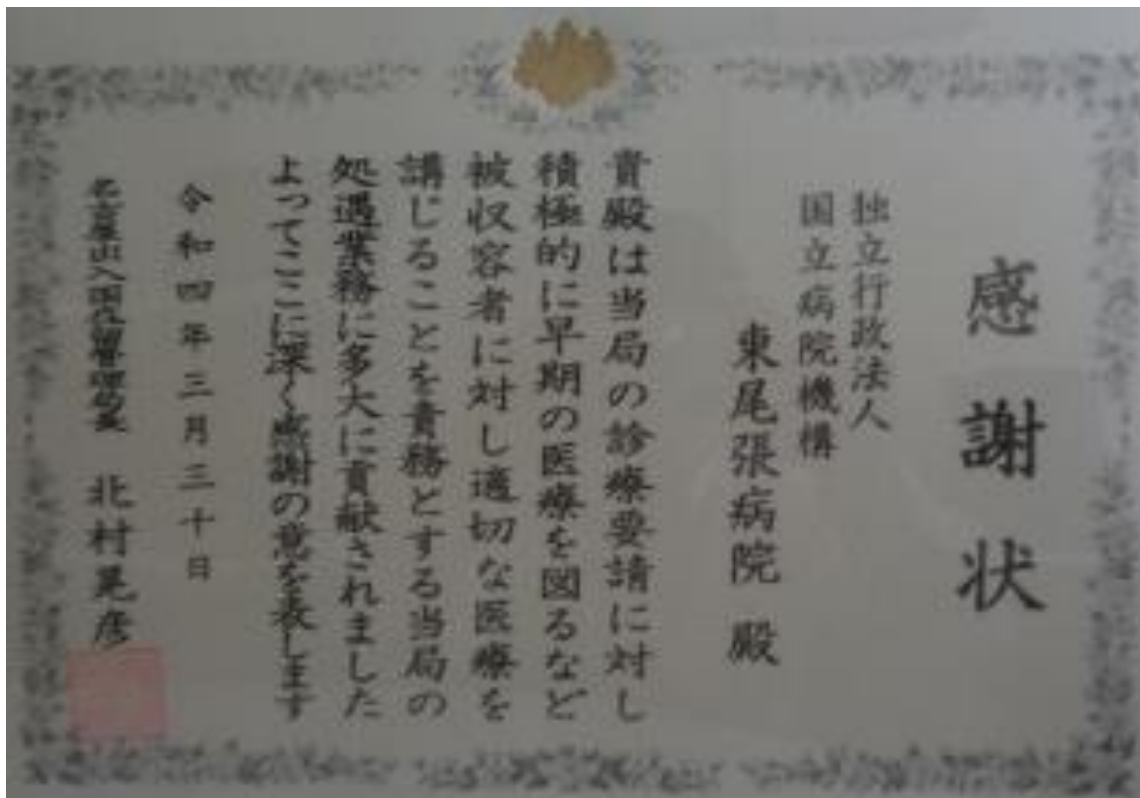 感謝状
独立行政法人
国立病院機構
東尾張病院 殿
貴殿は当局の診療要請に対し
積極的に早期の医療を図るなど
被収容者に対し適切な医療を
講じることを責務とする当局の
処遇業務に多大に貢献されました
よってここに深く感謝の意を表します
令和四年三月三十日
名古屋出入国在留管理局長 北村晃彦